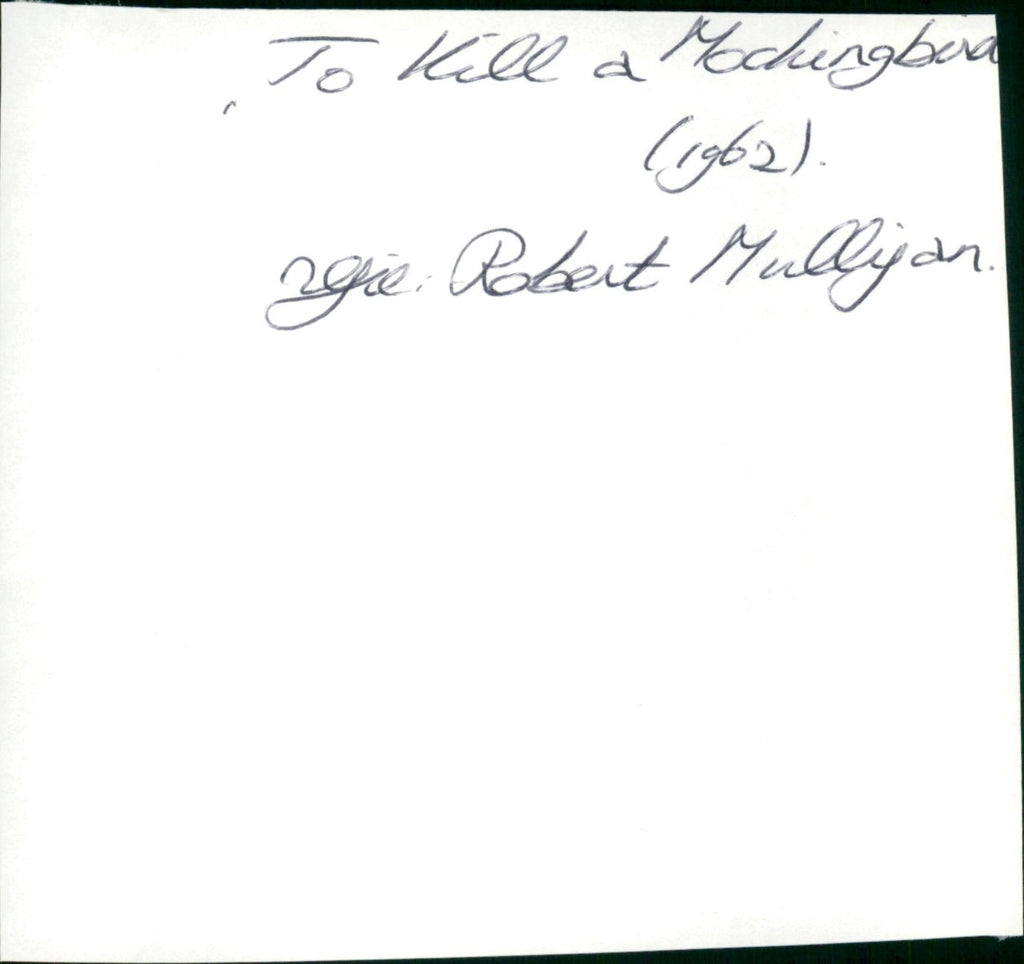 To Kill a Mockingbird
(1962).
regie: Robert Mulligan.